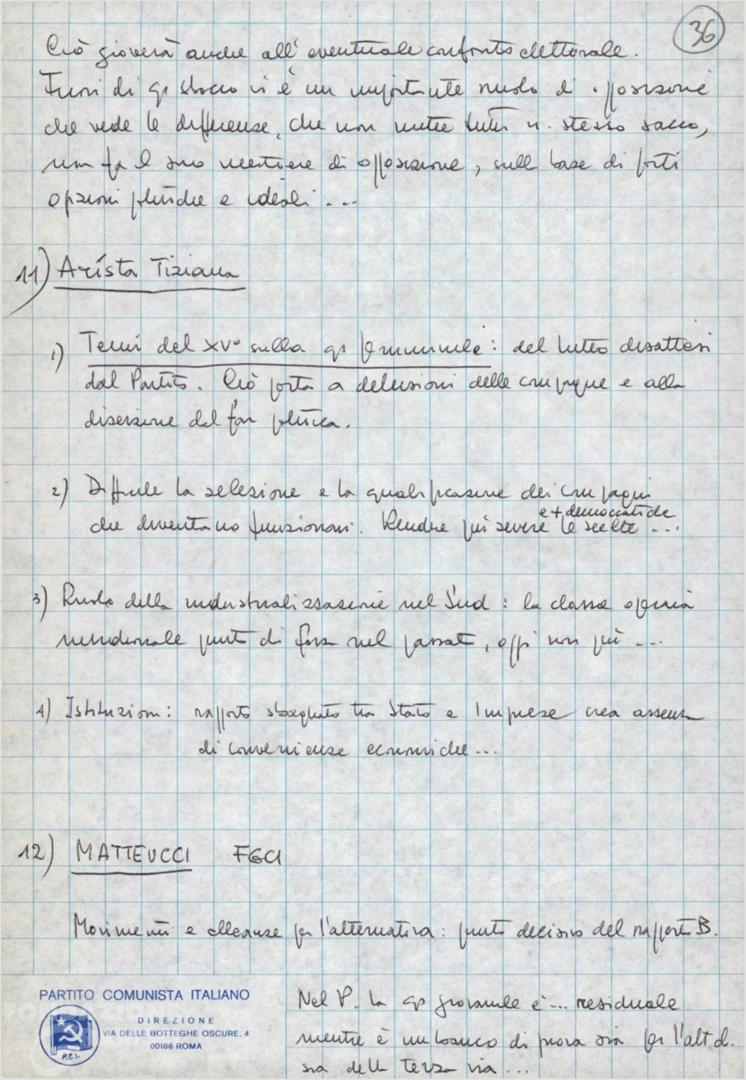 36
Ciò gioverà anche all'eventuale confronto elettorale.
Fuori di qs blocco vi è un importante ruolo di opposizione
che vede le differenze, che non mette tutti n. stesso sacco,
ma fa il suo mestiere di opposizione, sulla base di forti
opzioni politiche e ideali ...
11) Arista Tiziana
1) Temi del XV° sulla qs femminile: del tutto disattesi
dal Partito. Ciò porta a delusioni delle compagne e alla
diserzione del far politica.
2) Difficile la selezione e la qualificazione dei compagni
e + democratiche
che diventano funzionari. Rendere più severe le scelte ...
3) Ruolo della industrializzazione nel Sud: la classe operaia
meridionale punto di forza nel passato, oggi non più ...
4) Istituzioni: rapporto sbagliato tra Stato e Imprese crea assenza
di convenienze economiche ...
12) MATTEUCCI FGCI
Movimenti e alleanze per l'alternativa: punto decisivo del rapporto B.
Nel P. la qs giovanile è ... residuale
mentre è un banco di prova sia per l'alt. d.
sia della terza via ...
PARTITO COMUNISTA ITALIANO
DIREZIONE
VIA DELLE BOTTEGHE OSCURE, 4
00186 ROMA
P.C.I.